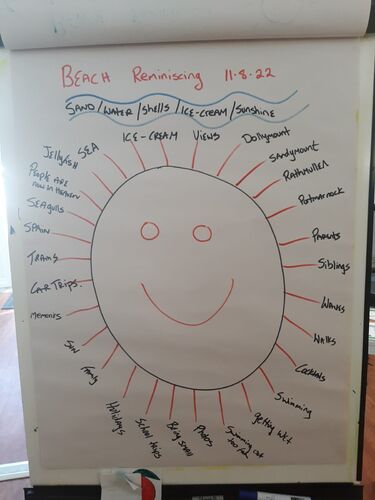 BEACH Reminiscing 11.8.22
SAND/WATER/Shells/ICE-CREAM/Sunshine
ICE-CREAM
VIEWS
Dollymount
Sandymount
RATHMULLEN
Portmarnock
PARENTS
Siblings
WAVES
Walks
Cocktails
Swimming
getting WET
Swimming out
too far
Photos
Being small
School trips
Holidays
Family
SUN
Memories
CAR TRIPS.
TRAMS
SPAIN
SEAgulls
PEOPLE ARE
NOW IN HEAVEN
Jellyfish
SEA